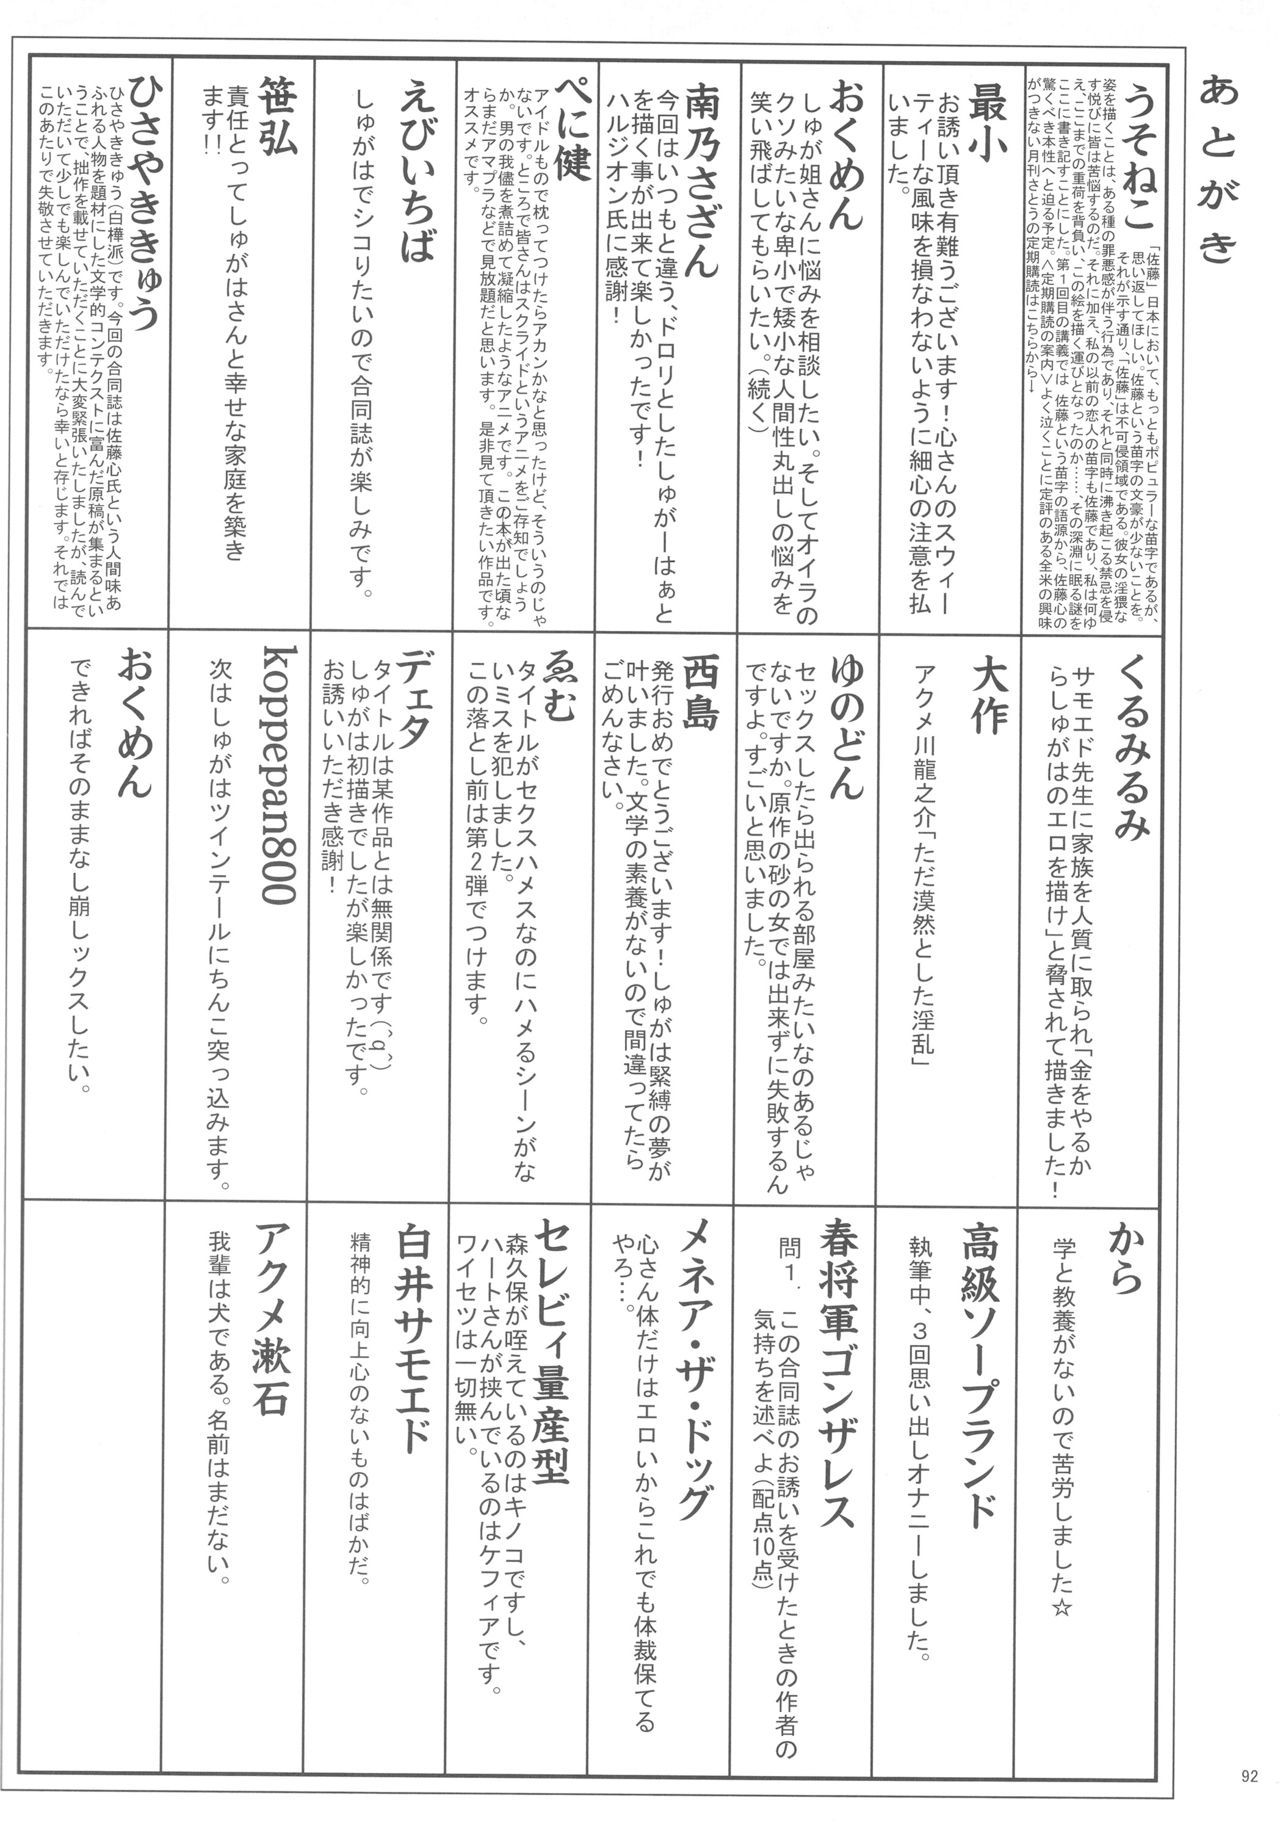 あとがき
うそねこ
「佐藤」日本において、もっともポピュラーな苗字であるが、
思い返してほしい。佐藤という苗字の文豪が少ないことを。
それが示す通り、「佐藤」は不可侵領域である。彼女の淫猥な
姿を描くことは、ある種の罪悪感が伴う行為であり、それと同時に沸き起こる禁忌を侵
す悦びに皆は苦悩するのだ。それに加え、私の以前の恋人の苗字も佐藤であり、私は何ゆ
え、ここまでの重荷を背負い、この絵を描く運びとなったのか……、その深淵に眠る謎を
ここに書き記すことにした。第1回目の講義では 佐藤という苗字の語源から、佐藤心の
驚くべき本性へと迫る予定。＜定期購読の案内＞よく泣くことに定評のある全米の興味
がつきない月刊さとうの定期購読はこちらから→
最小
お誘い頂き有難うございます！心さんのスウィー
ティーな風味を損なわないように細心の注意を払
いました。
おくめん
しゅが姐さんに悩みを相談したい。そしてオイラの
クソみたいな卑小で矮小な人間性丸出しの悩みを
笑い飛ばしてもらいたい。（続く）
南乃さざん
今回はいつもと違う、ドロリとしたしゅがーはぁと
を描く事が出来て楽しかったです！
ハルジオン氏に感謝！
ぺに健
アイドルもので枕ってつけたらアカンかなと思ったけど、そういうのじゃ
ないです。ところで皆さんはスクライドというアニメをご存知でしょう
か。男の我儘を煮詰めて凝縮したようなアニメです。この本が出た頃な
らまだアマプラなどで見放題だと思います。是非見て頂きたい作品です。
オススメです。
えびいちば
しゅがはでシコりたいので合同誌が楽しみです。
笹弘
責任とってしゅがはさんと幸せな家庭を築き
ます！！
ひさやききゅう
ひさやききゅう（白樺派）です。今回の合同誌は佐藤心氏という人間味あ
ふれる人物を題材にした文学的コンテクストに富んだ原稿が集まるとい
うことで、拙作を載せていただくことに大変緊張いたしましたが、読んで
いただいて少しでも楽しんでいただけたなら幸いと存じます。それでは
このあたりで失敬させていただきます。
くるみるみ
サモエド先生に家族を人質に取られ「金をやるか
らしゅがはのエロを描け」と脅されて描きました！
大作
アクメ川龍之介「ただ漠然とした淫乱」
ゆのどん
セックスしたら出られる部屋みたいなのあるじゃ
ないですか。原作の砂の女では出来ずに失敗するん
ですよ。すごいと思いました。
西島
発行おめでとうございます！しゅがは緊縛の夢が
叶いました。文学の素養がないので間違ってたら
ごめんなさい。
ゑむ
タイトルがセクスハメスなのにハメるシーンがな
いミスを犯しました。
この落とし前は第2弾でつけます。
デェタ
タイトルは某作品とは無関係です(´q`)
しゅがは初描きでしたが楽しかったです。
お誘いいただき感謝！
koppepan800
次はしゅがはツインテールにちんこ突っ込みます。
おくめん
できればそのままなし崩しックスしたい。
から
学と教養がないので苦労しました☆
高級ソープランド
執筆中、３回思い出しオナニーしました。
春将軍ゴンザレス
問１．　この合同誌のお誘いを受けたときの作者の
気持ちを述べよ（配点10点）
メネア・ザ・ドッグ
心さん体だけはエロいからこれでも体裁保てる
やろ…。
セレビィ量産型
森久保が咥えているのはキノコですし、
ハートさんが挟んでいるのはケフィアです。
ワイセツは一切無い。
白井サモエド
精神的に向上心のないものはばかだ。
アクメ漱石
我輩は犬である。名前はまだない。
92